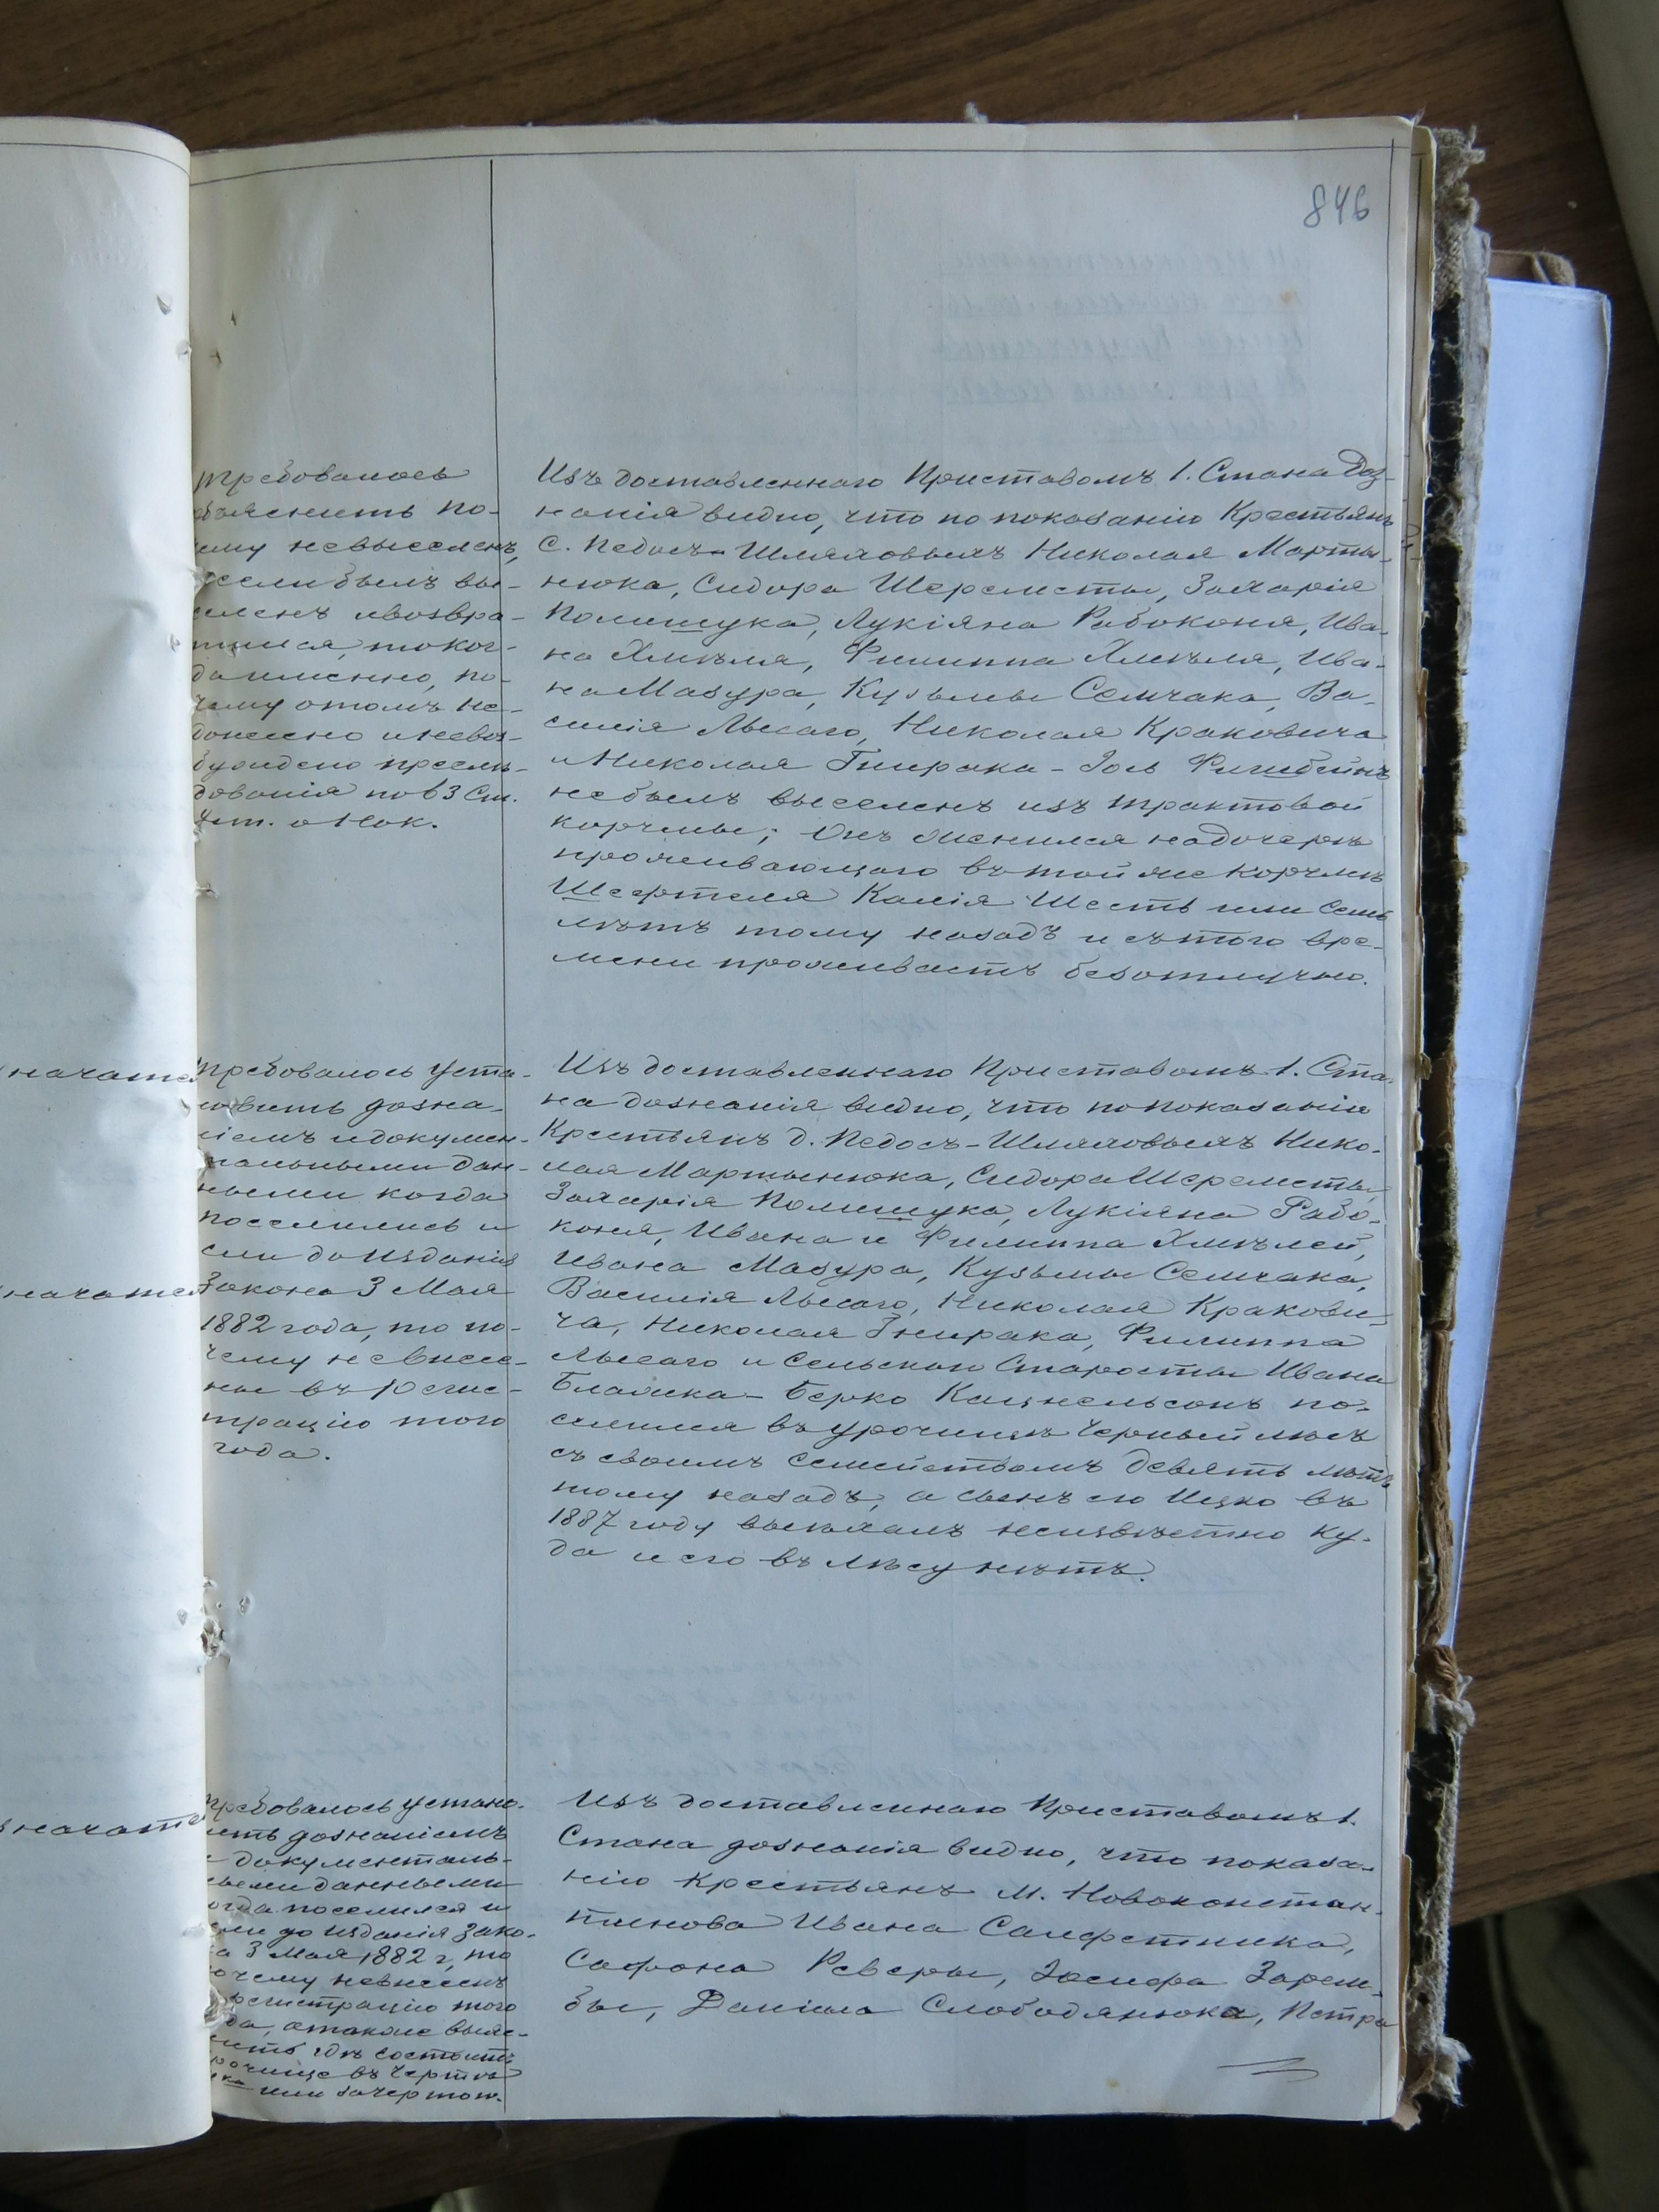 846
требовалось
объяснить по-
чему невыселенъ,
если былъ вы-
селенъ ивозвра-
тился, токог-
да именно, по-
чему отомъ не-
донесено иневоз-
буждено преслѣ-
дованія по63 Ст.
Уст. о Нак.
Изъ доставленнаго Приставомъ 1. Стана Доз-
нанія видно, что по показанію Крестьянъ
С. Педосъ Шляховыхъ Николая Марты-
нюка, Сидора Шереметы, Захарія
Полищука, Лукіяна Рабоконя, Ива-
на Хмѣля, Филиппа Хмѣля, Ива-
на Мазура, Кузьмы Семчака, Ва-
силія Лысаго, Николая Краковича
и Николая Гнирака - Іось
небылъ выселенъ изъ трактовой
корчмы; Онъ женился надочерѣ
проживающаго вътой же корчмѣ
Шефтеля Камія Шесть или Семь
лѣтъ тому назадъ и сътого вре-
мени проживаетъ безотлучно.
значатся
требовалось уста-
новить дозна-
ніемъ идокумен-
тальными дан-
ными когда
поселились и
если до изданія
значатся
Закона 3 Мая
1882 года, то по-
чему невнесе-
ны въ регис-
трацію того
года.
Изъ доставленнаго Приставомъ 1. Ста-
на дознанія видно, что попоказанію
Крестьянъ д. Педосъ-Шляховыхъ Нико-
лая Мартынюка, Сидора Шереметы,
Захарія Полищука, Лукіяна Рабо-
коня, Ивана и Филиппа Хмѣлей,
Ивана Мазура, Кузьмы Семчака,
Василія Лысаго, Николая Кракови-
ча, Николая Гнирака, Филиппа
Лысаго и Сельскаго Старосты Ивана
Блажка - Берко Кацнельсонъ по-
селился въ урочищѣ Черный лѣсъ
съ своимъ Семействомъ девять лѣтъ
тому назадъ, а сынъ его Ицко въ
1887 году выѣхалъ неизвѣстно ку-
да и его въ лѣсу нѣтъ.
значатся
требовалось устано-
вить дознаніемъ
и документаль-
ными данными
когда поселился и
если до изданія Зако-
на 3 Мая 1882 г, то
почему невнесенъ
регистрацію того
года, атакже выяс-
нить гдѣ состоитъ
урочище въ Чертѣ
или зачертою.
Изъ доставленнаго Приставомъ 1.
Стана дознанія видно, что показа-
нію Крестьянъ М. Новоконстан-
тинова Ивана Салфетника,
Сафона Реверы, Іосифа Зарем-
бы, Даніила Слободянюка, Петра